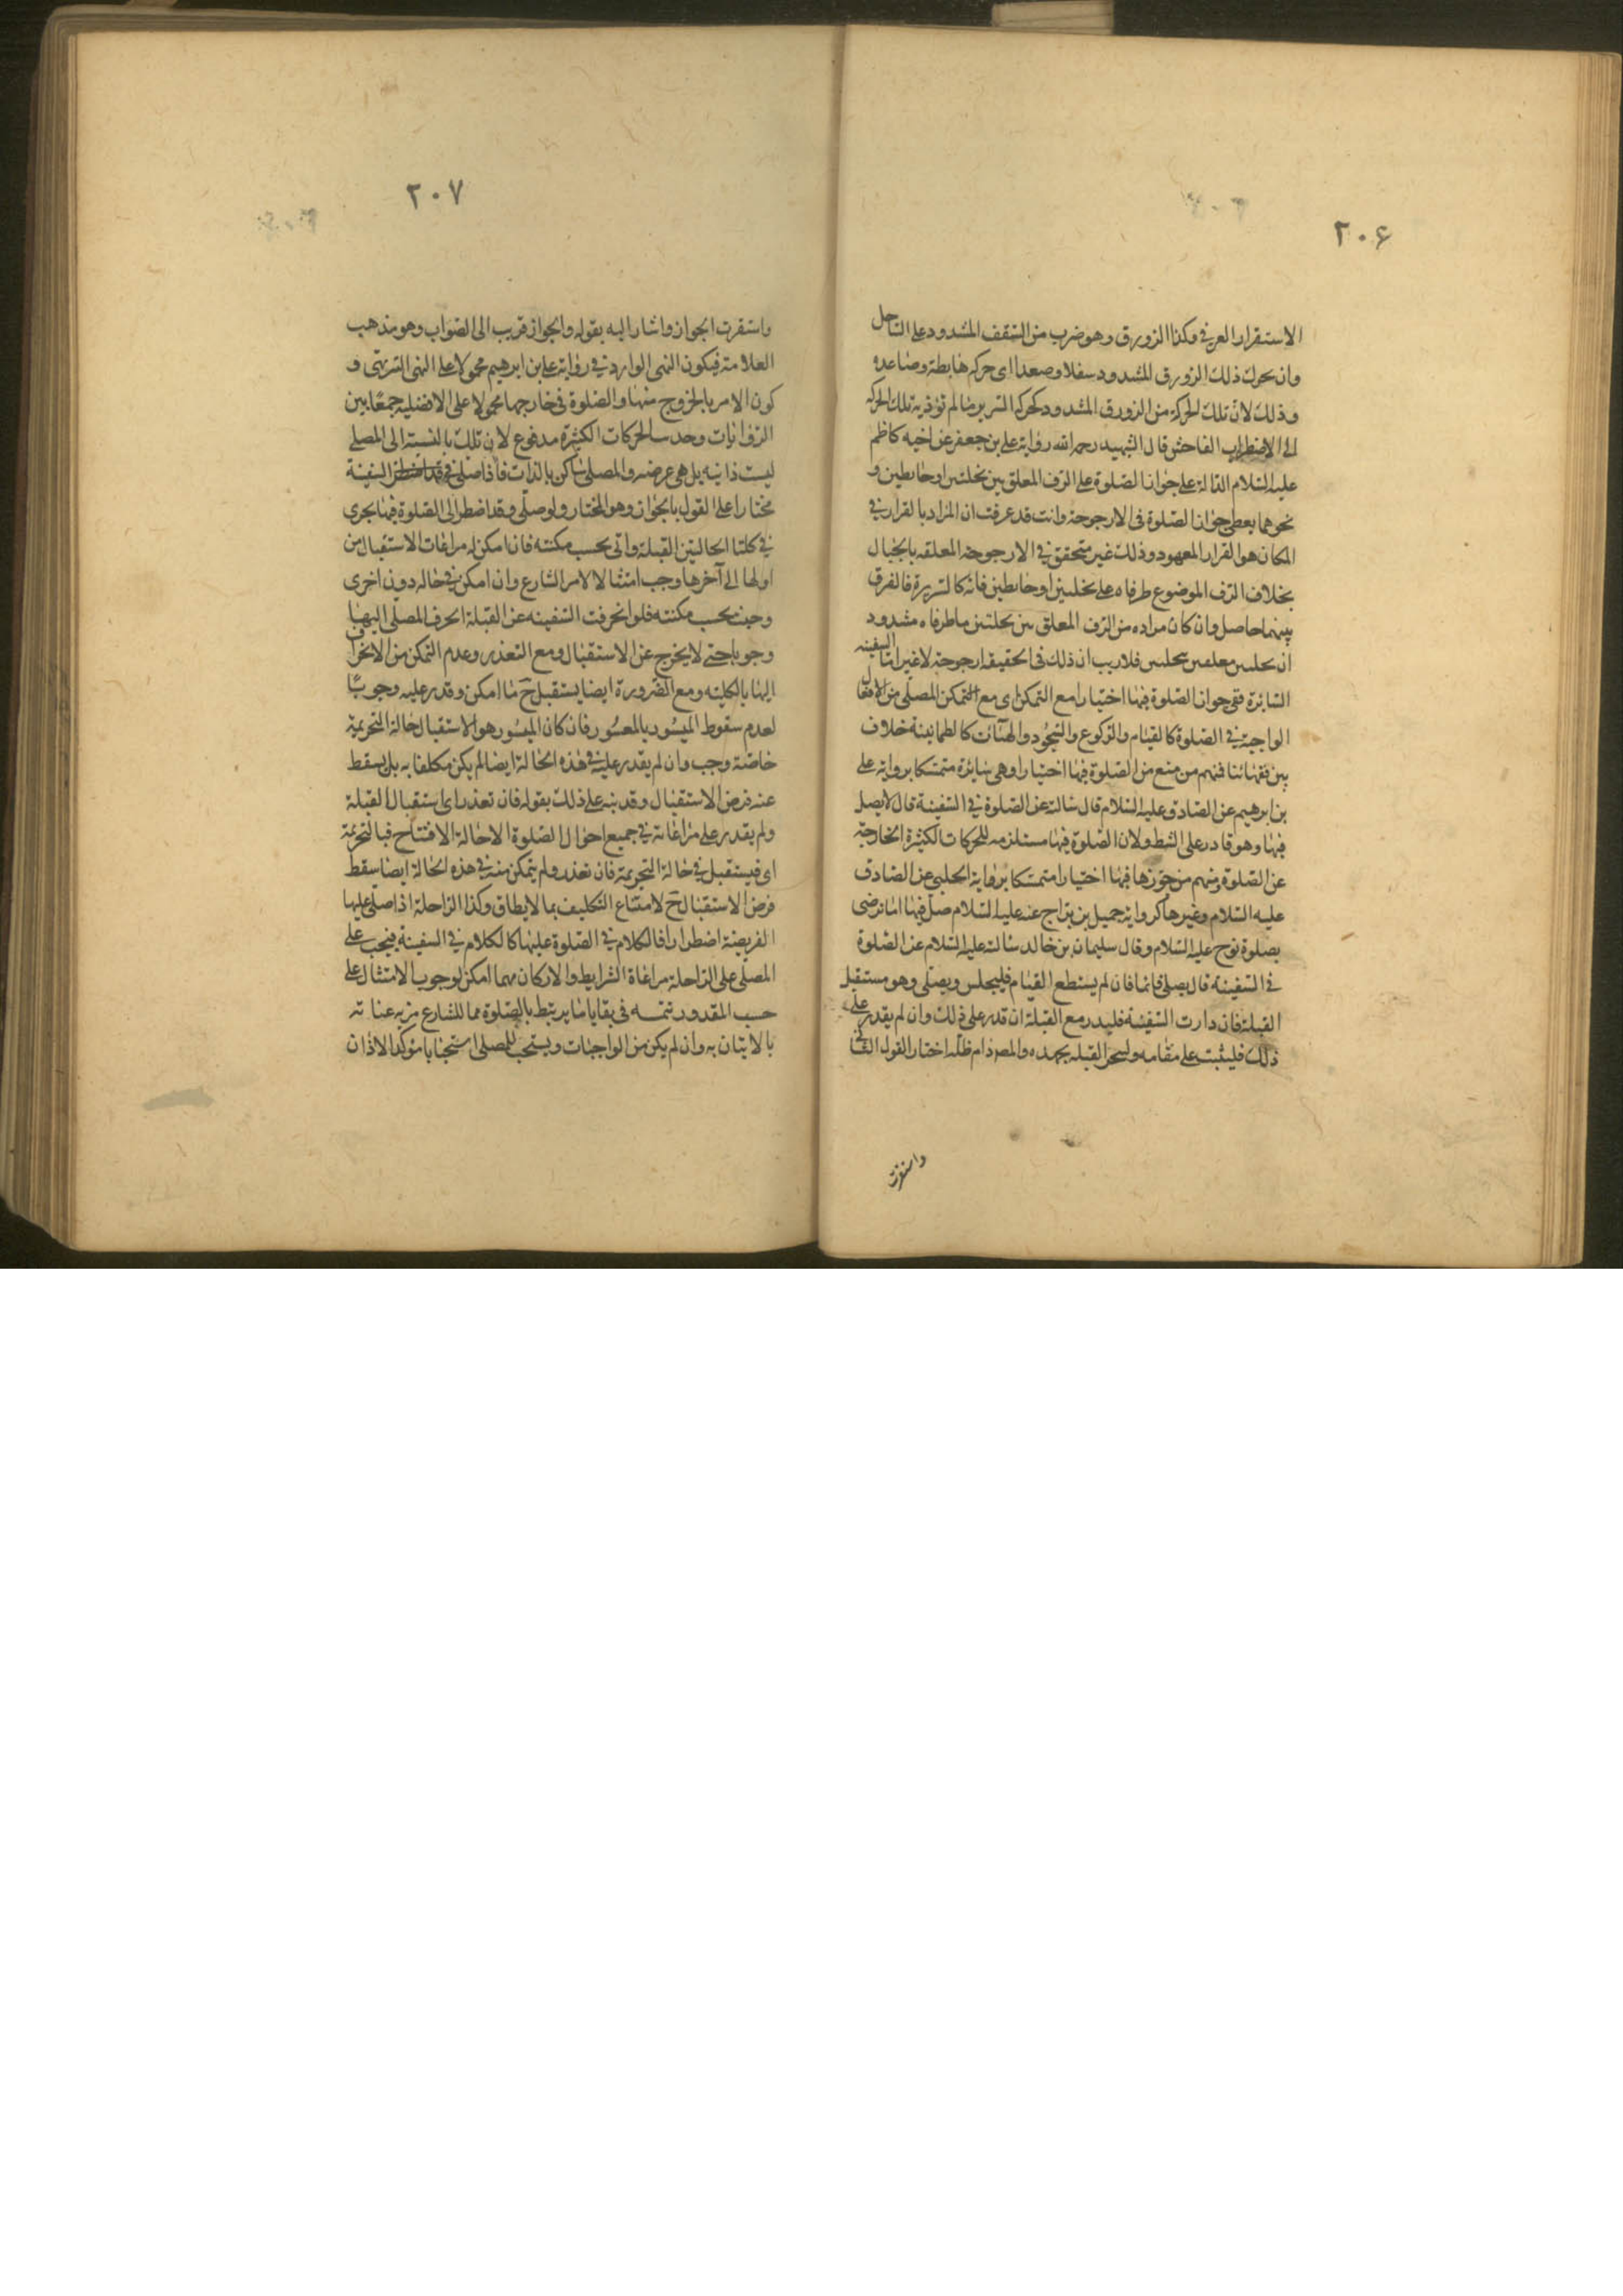 ٢٠۶
الاستقرار العرفي وكذا الزورق وهو ضرب من السقف المشدود على الساحل
وان تحرك ذلك الزورق المشدود سفلا وصعدا اى حركه هابطة وصاعده
وذلك لان تلك الحركة من الزورق المشدود كحركه السرير ما لم تؤذ به تلك الحركه
الى الاضطراب الفاحش قال الشهيد رحمه الله رواية على بن جعفر عن اخيه كاظم
عليه السلام الدالة على جواز الصلوة على الرف المعلق بين نخلتين او حايطين و
نحوهما يعطى جواز الصلوة فى الارجوحة وانت قد عرفت ان المراد بالقرار في
المكان هو القرار المعهود وذلك غير متحقق في الارجوحه المعلقه بالحبال
بخلاف الرف الموضوع طرفاه على نخلتين او حايطين فانه كالسرير فالفرق
بينهما حاصل وان كان مراده من الرف المعلق بين نخلتين ما طرفاه مشدود
ان بحبلين معلقين بنخلتين فلا ريب ان ذلك فى الحقيقه ارجوحة لا غير اما السفينه
السائرة ففى جواز الصلوة فيها اختيارا مع التمكن اى مع التمكن المصلى من الافعال
الواجبة في الصلوة كالقيام والركوع والسجود والهيئات كالطمانينة خلاف
بين فقهائنا فمنهم من منع من الصلوة فيها اختيارا وهى سايرة متمسكا برواية على
بن ابرهيم عن الصادق عليه السلام قال سالته عن الصلوة في السفينة قال لا يصل
فيها وهو قادر على الشط ولان الصلوة فيها مستلزمه للحركات الكثيرة الخارجة
عن الصلوة ومنهم من جوزها فيها اختيارا متمسكا برواية الحلبى عن الصادق
عليه السلام وغيرها كرواية جميل بن دراج عنه عليه السلام صل فيها اما ترضى
بصلوة نوح عليه السلام وقال سليمان بن خالد سالته عليه السلام عن الصلوة
فى السفينة قال يصلى قائما فان لم يستطع القيام فليجلس ويصلى وهو مستقبل
القبلة فان دارت السفينة فليدر مع القبلة ان قدر على ذلك وان لم يقدر على
ذلك فليثبت على مقامه وليتحر القبله بجهده والمص دام ظله اختار القول الثانى
واستقرت
٢٠٧
واستقرت الجواز واشار اليه بقوله والجواز قريب الى الصواب وهو مذهب
العلامة فيكون النهى الوارد في رواية على بن ابرهيم محمولا على النهى التنزيهى و
كون الامر بالخروج منها والصلوة فى خارجها محمولا على الافضليه جمعا بين
الروايات وحديث الحركات الكثيرة مدفوع لان تلك بالنسبة الى المصلى
ليست ذاتيه بل هى عرضيه والمصلى ساكن بالذات فاذا صلى فى السفينة
مختارا على القول بالجواز وهو المختار ولو صلى وقد اضطر الى الصلوة فيها يجرى
في كلتا الحالتين القبلة واتى بحسب مكنته فان امكن له مراعات الاستقبال من
اولها الى آخرها وجب امتثالا لامر الشارع وان امكن في حاله دون اخرى
وجبت بحسب مكنته فلو انحرفت السفينه عن القبلة انحرف المصلى اليها
وجوبا حتى لا يخرج عن الاستقبال ومع التعذر وعدم التمكن من الانحراف
اليها بالكلية ومع الضرورة ايضا يستقبل ح ما امكن وقدر عليه وجوبا
لعدم سقوط الميسور بالمعسور فان كان الميسور هو الاستقبال حالة التحريمة
خاصة وجب وان لم يقدر عليه في هذه الحالة ايضا لم يكن مكلفا به بل يسقط
عنه فرض الاستقبال وقد نبه على ذلك بقوله فان تعذر اى استقبال القبلة
ولم يقدر على مراعاته في جميع احوال الصلوة الا حالة الافتتاح فبالتحريمة
اى فيستقبل في حالة التحريمة فان تعذر ولم يتمكن منه في هذه الحالة ايضا سقط
فرض الاستقبال ح لامتناع التكليف بما لا يطاق وكذا الراحلة اذا صلى عليها
الفريضة اضطرارا فالكلام في الصلوة عليها كالكلام في السفينة فيجب على
المصلى على الراحلة مراعاة الشرايط والاركان مهما امكن لوجوب الامتثال على
حسب المقدور تتمه فى بقايا ما يرتبط بالصلوة مما للشارع مزيد عناية
بالاتيان به وان لم يكن من الواجبات ويستحب للمصلى استحبابا مؤكدا الاذان